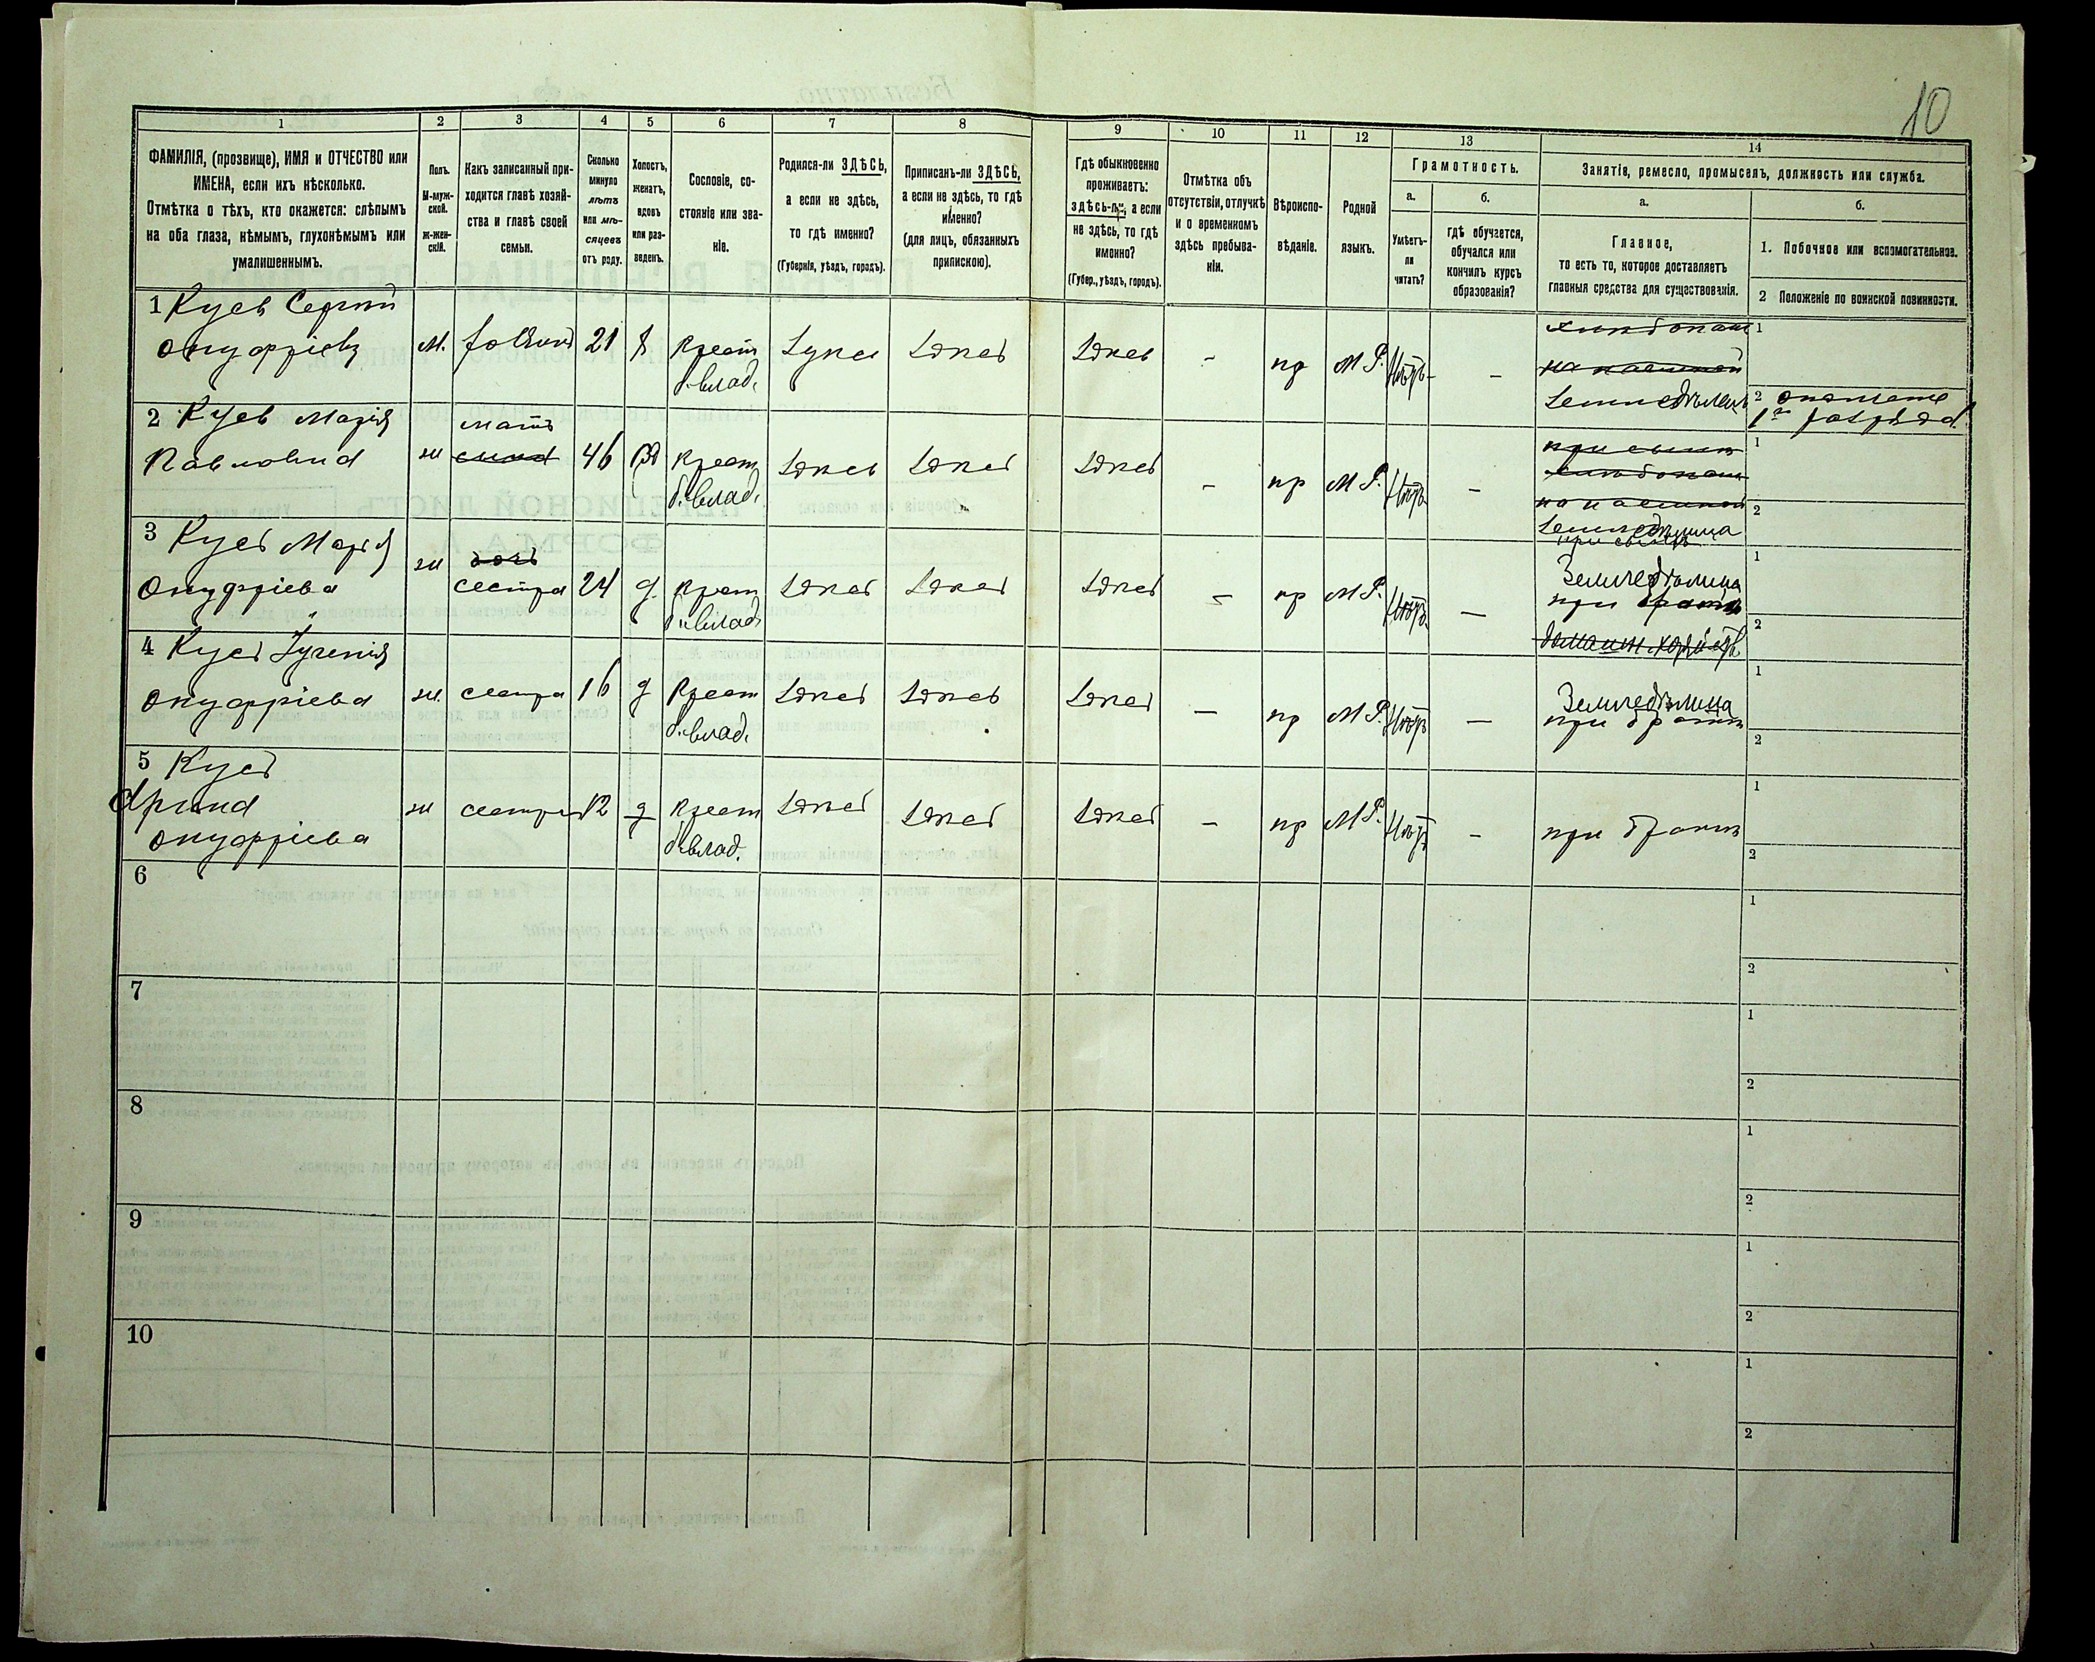 10
1
2
3
4
5
6
7
8
9
10
11
12
13
14
ФАМИЛІЯ, (прозвище), ИМЯ и ОТЧЕСТВО или
ИМЕНА, если ихъ нѣсколько.
Отмѣтка о тѣхъ, кто окажется: слѣпымъ
на оба глаза, нѣмымъ, глухонѣмымъ или
умалишеннымъ.
Полъ.
М-муж-
ской.
Ж-жен-
скій.
Какъ записанный при-
ходится главѣ хозяй-
ства и главѣ своей
семьи.
Сколько
минуло
лѣтъ
или мѣ-
сяцевъ
отъ роду.
Холостъ,
женатъ,
вдовъ
или раз-
веденъ.
Сословіе, со-
стояніе или зва-
ніе.
Родился-ли ЗДѢСЬ,
а если не здѣсь,
то гдѣ именно?
(Губернія, уѣздъ, городъ).
Приписанъ-ли ЗДѢСЬ,
а если не здѣсь, то гдѣ
именно?
(для лицъ, обязанныхъ
припискою).
Гдѣ обыкновенно
проживаетъ:
здѣсь-ли, а если
не здѣсь, то гдѣ
именно?
(Губер., уѣздъ, городъ).
Отмѣтка объ
отсутствіи, отлучкѣ
и о временномъ
здѣсь пребыва-
ніи.
Вѣроиспо-
вѣданіе.
Родной
языкъ.
Грамотность.
а.
Умѣетъ-
ли
читать?
б.
гдѣ обучается,
обучался или
кончилъ курсъ
образованія?
Занятіе, ремесло, промыселъ, должность или служба.
а.
Главное,
то есть то, которое доставляетъ
главныя средства для существованія.
б.
1. Побочное или вспомогательное.
2 Положеніе по воинской повинности.
1 Куев Сергій
Онуфріевъ
м.
21
х
крест
б. влад.
здесь
здесь
-
пр
М Р.
Нѣтъ
-
хлебопаш
1
2 ополчение
1го разряд.
2 Куев Марія
Павловна
ж
мать
46
вд
крест
б. влад.
здесь
здесь
здесь
-
пр
М Р.
Нѣтъ
-
1
2
3 Куев Марія
Онуфріева
ж
дочь
сестра
24
д.
крест
б. влад
здесь
здесь
здесь
-
пр
М Р.
Нѣтъ
-
Земледѣлица
при братѣ
1
2
4 Куев
Онуфріева
ж.
сестра
16
д
крест
б. влад.
здесь
здесь
здесь
-
пр
М Р.
Нѣтъ
-
Земледѣлица
при братѣ
1
2
5 Куев
Арина
Онуфріева
ж
сестра
12
д
крест
б. влад.
здесь
здесь
здесь
-
пр
М Р.
Нѣтъ
-
при братѣ
1
2
6
1
2
7
1
2
8
1
2
9
1
2
10
1
2